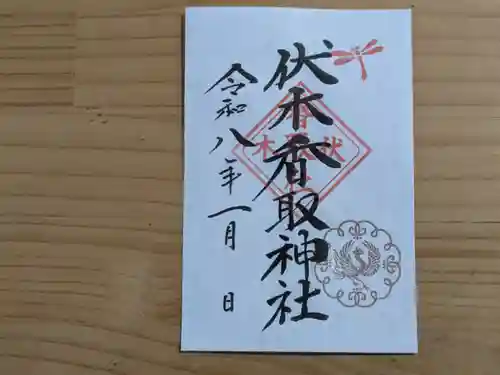 伏木香取神社
令和八年一月 日